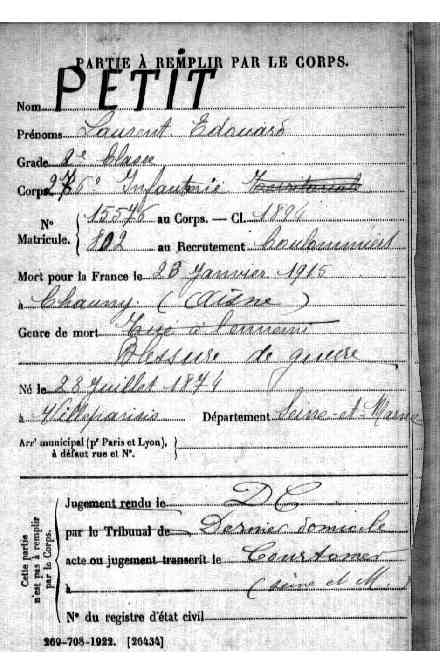 PARTIE À REMPLIR PAR LE CORPS.
Nom PETIT
Prénoms Laurent Edouard
Grade 2e Classe
Corps 276° Infanterie Territoriale
N° Matricule. 15576 au Corps. — Cl. 1894
802 au Recrutement Coulommiers
Mort pour la France le 23 Janvier 1915
à Chauny (Aisne)
Genre de mort Tué à l'ennemi
Blessure de guerre
Né le 28 Juillet 1874
à Villeparisis Département Seine-et-Marne
Arrt municipal (pr Paris et Lyon),
à défaut rue et N°.
Cette partie n'est pas à remplir par le Corps.
Jugement rendu le DC
par le Tribunal de Dernier domicile
acte ou jugement transcrit le Courtomer
à (Seine et M.)
N° du registre d'état civil
269-708-1922. [26434]